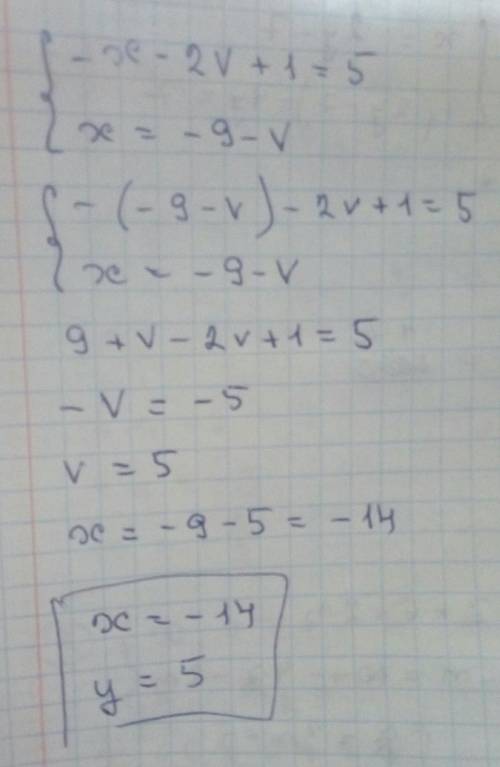 -x - 2v + 1 = 5
x = -9 - v
-(-9 - v) - 2v + 1 = 5
x = -9 - v
9 + v - 2v + 1 = 5
-v = -5
v = 5
x = -9 - 5 = -14
x = -14
y = 5